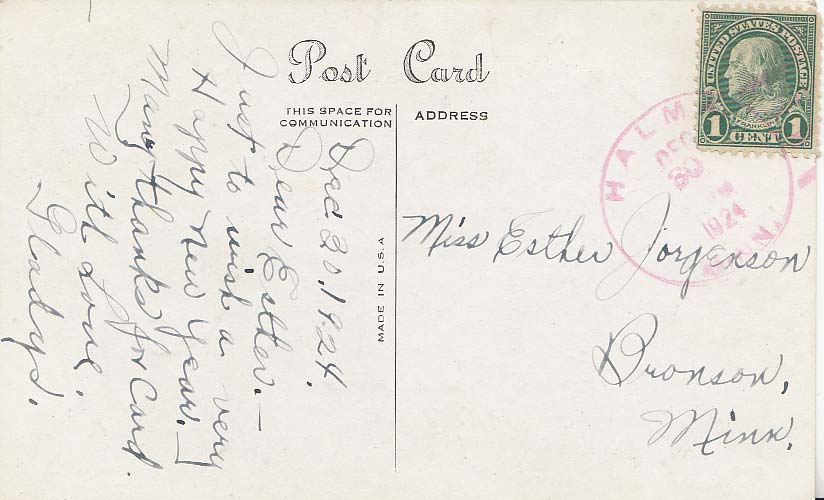 Post Card
THIS SPACE FOR COMMUNICATION
ADDRESS
Dec 30, 1924.
Dear Esther.—
Just to wish a very
Happy New Year.—
Many thanks for Card.
With Love,
Gladys.
MADE IN U.S.A
UNITED STATES POSTAGE
FRANKLIN
1 CENT 1
HALM
DEC
30
M
1924
MINN.
Miss Esther Jorgenson
Bronson,
Minn.